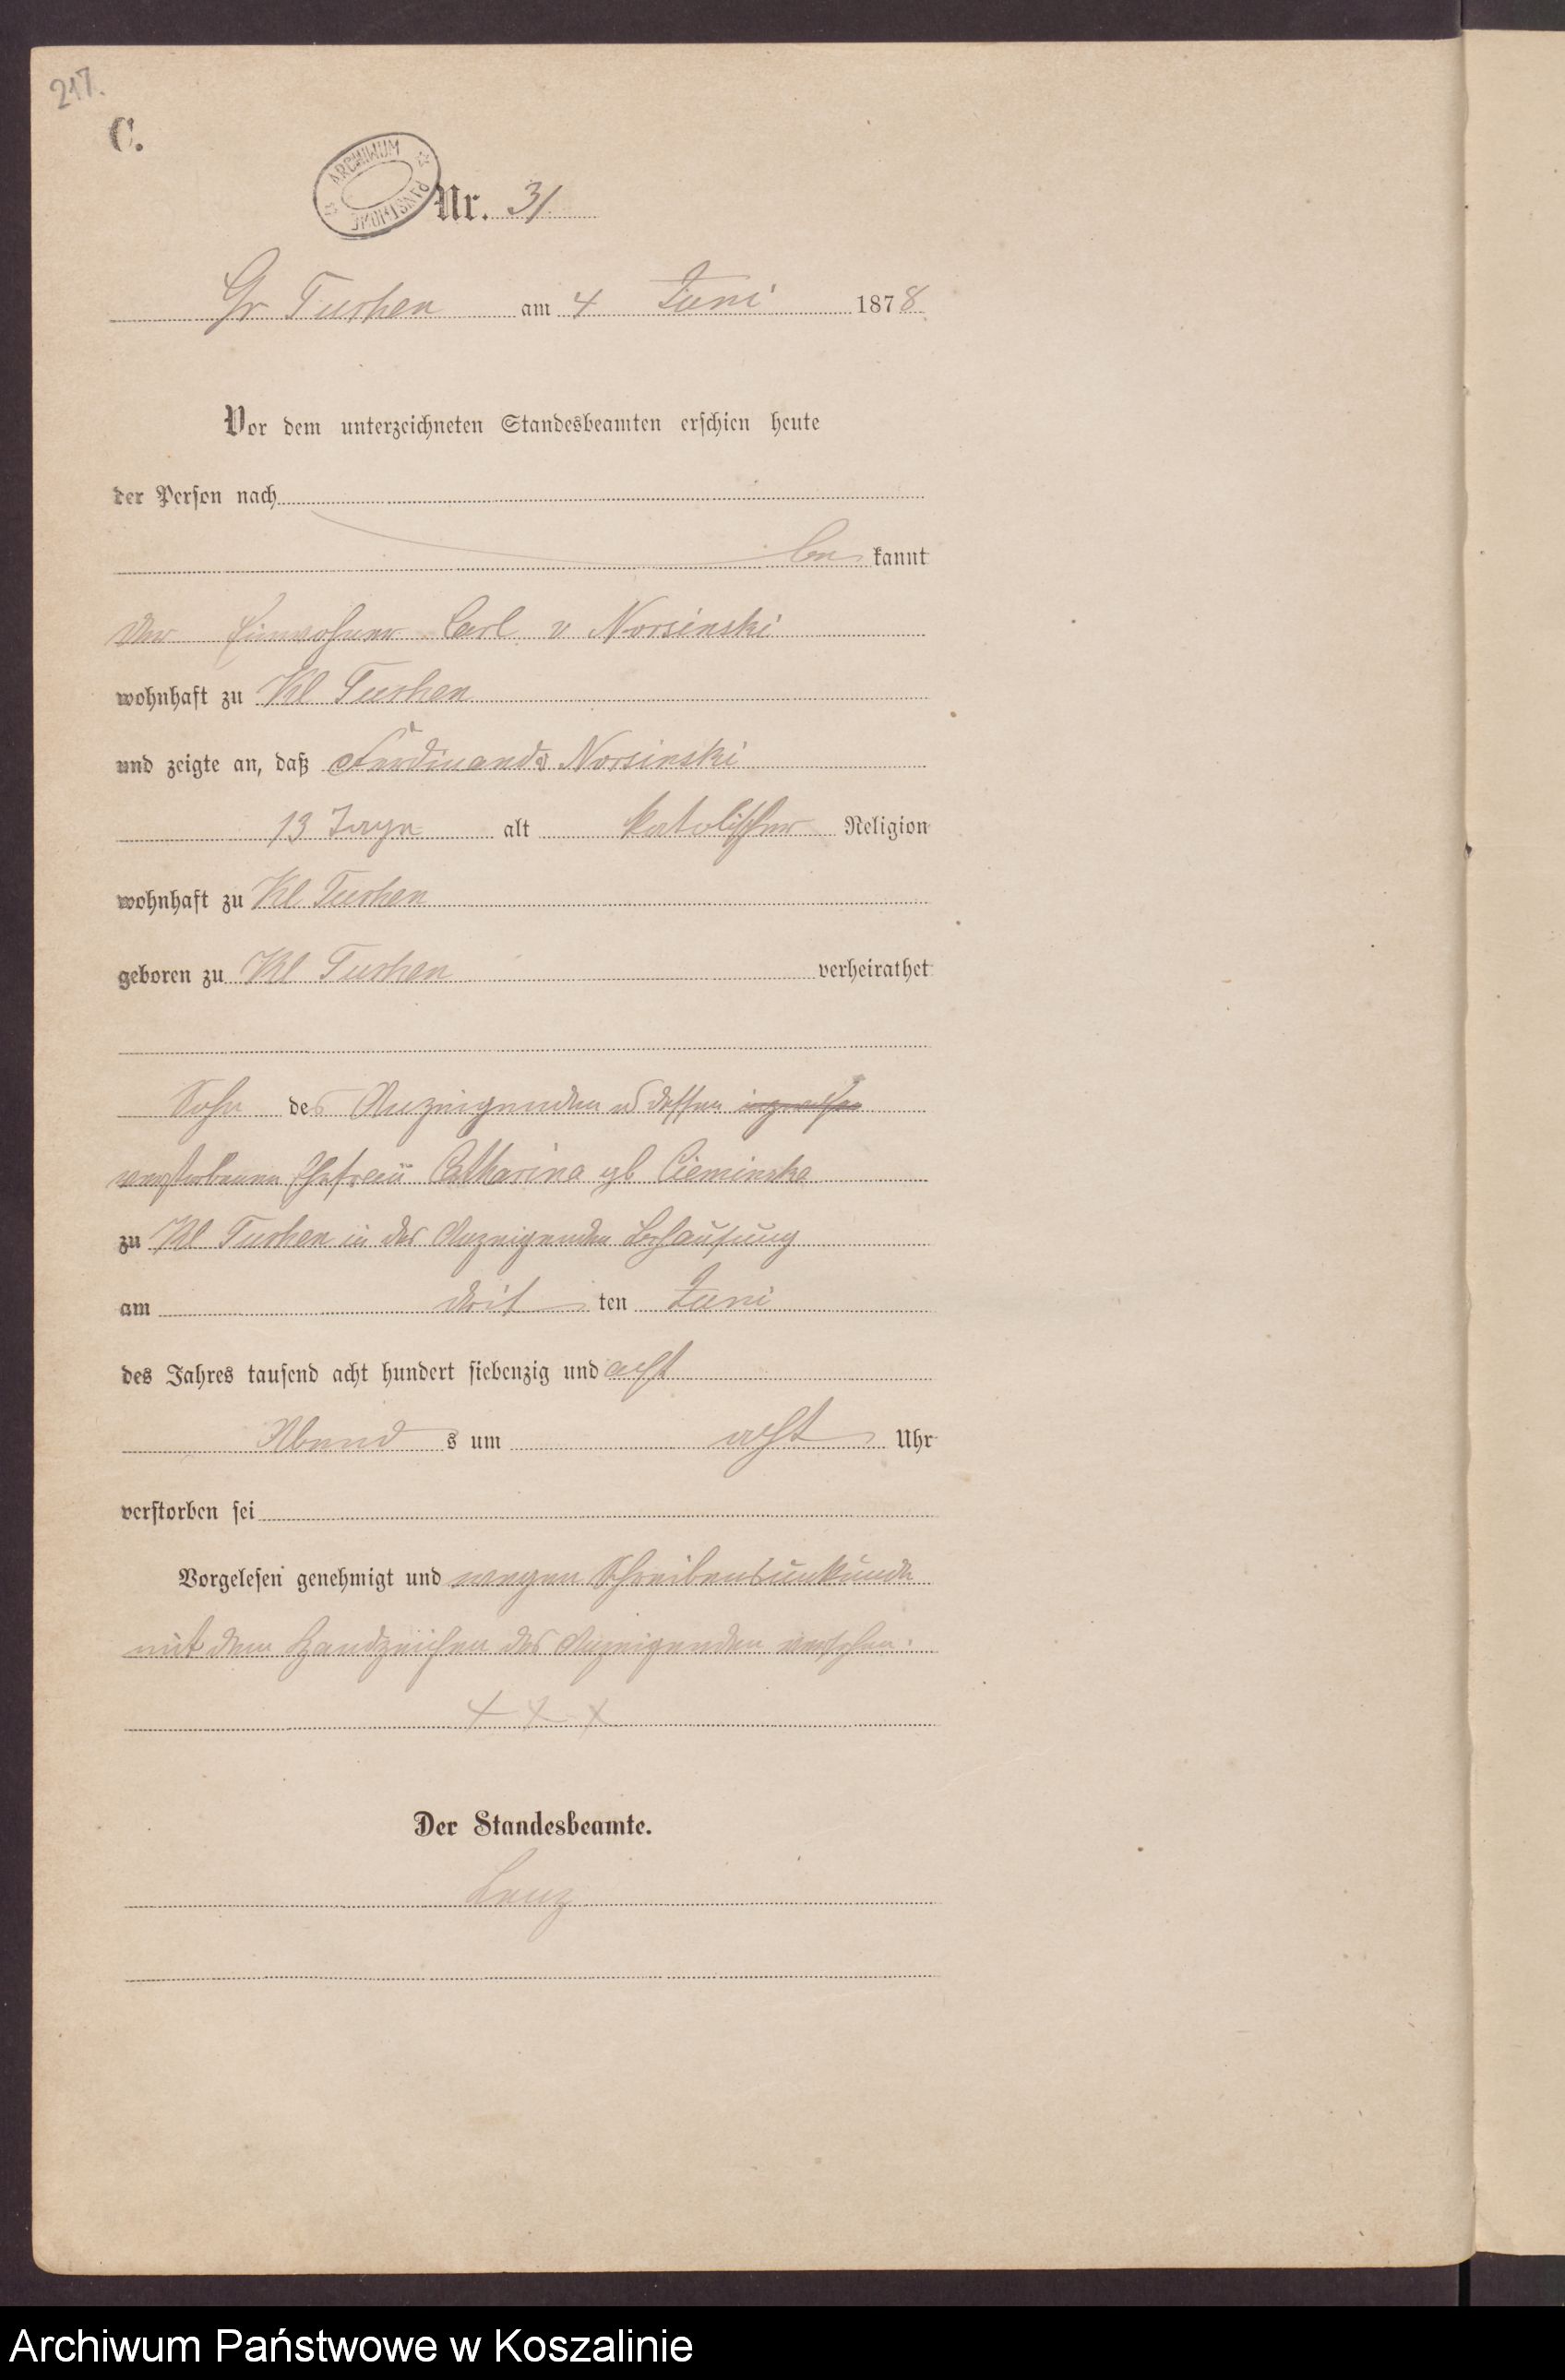 217.
C.
ARCHIWUM PAŃSTWOWE
Nr. 31
Gr Tuchen am 4 Juni 1878
Vor dem unterzeichneten Standesbeamten erschien heute
der Person nach
be kannt
der Einwohner Carl v Norsinski
wohnhaft zu Kl Tuchen
und zeigte an, daß Ferdinand Norsinski
13 Tage alt katolischer Religion
wohnhaft zu Kl Tuchen
geboren zu Kl Tuchen verheirathet
Sohn des Anzeigenden u dessen
verstorbenen Ehefrau Catharina gb Cieminska
zu Kl Tuchen in des Anzeigenden Behausung
am drit ten Juni
des Jahres tausend acht hundert siebenzig und acht
Abend s um acht Uhr
verstorben sei
Vorgelesen genehmigt und wegen Schreibensunkunde
mit dem Handzeichen des Anzeigenden versehen.
+ + +
Der Standesbeamte.
Lenz
Archiwum Państwowe w Koszalinie